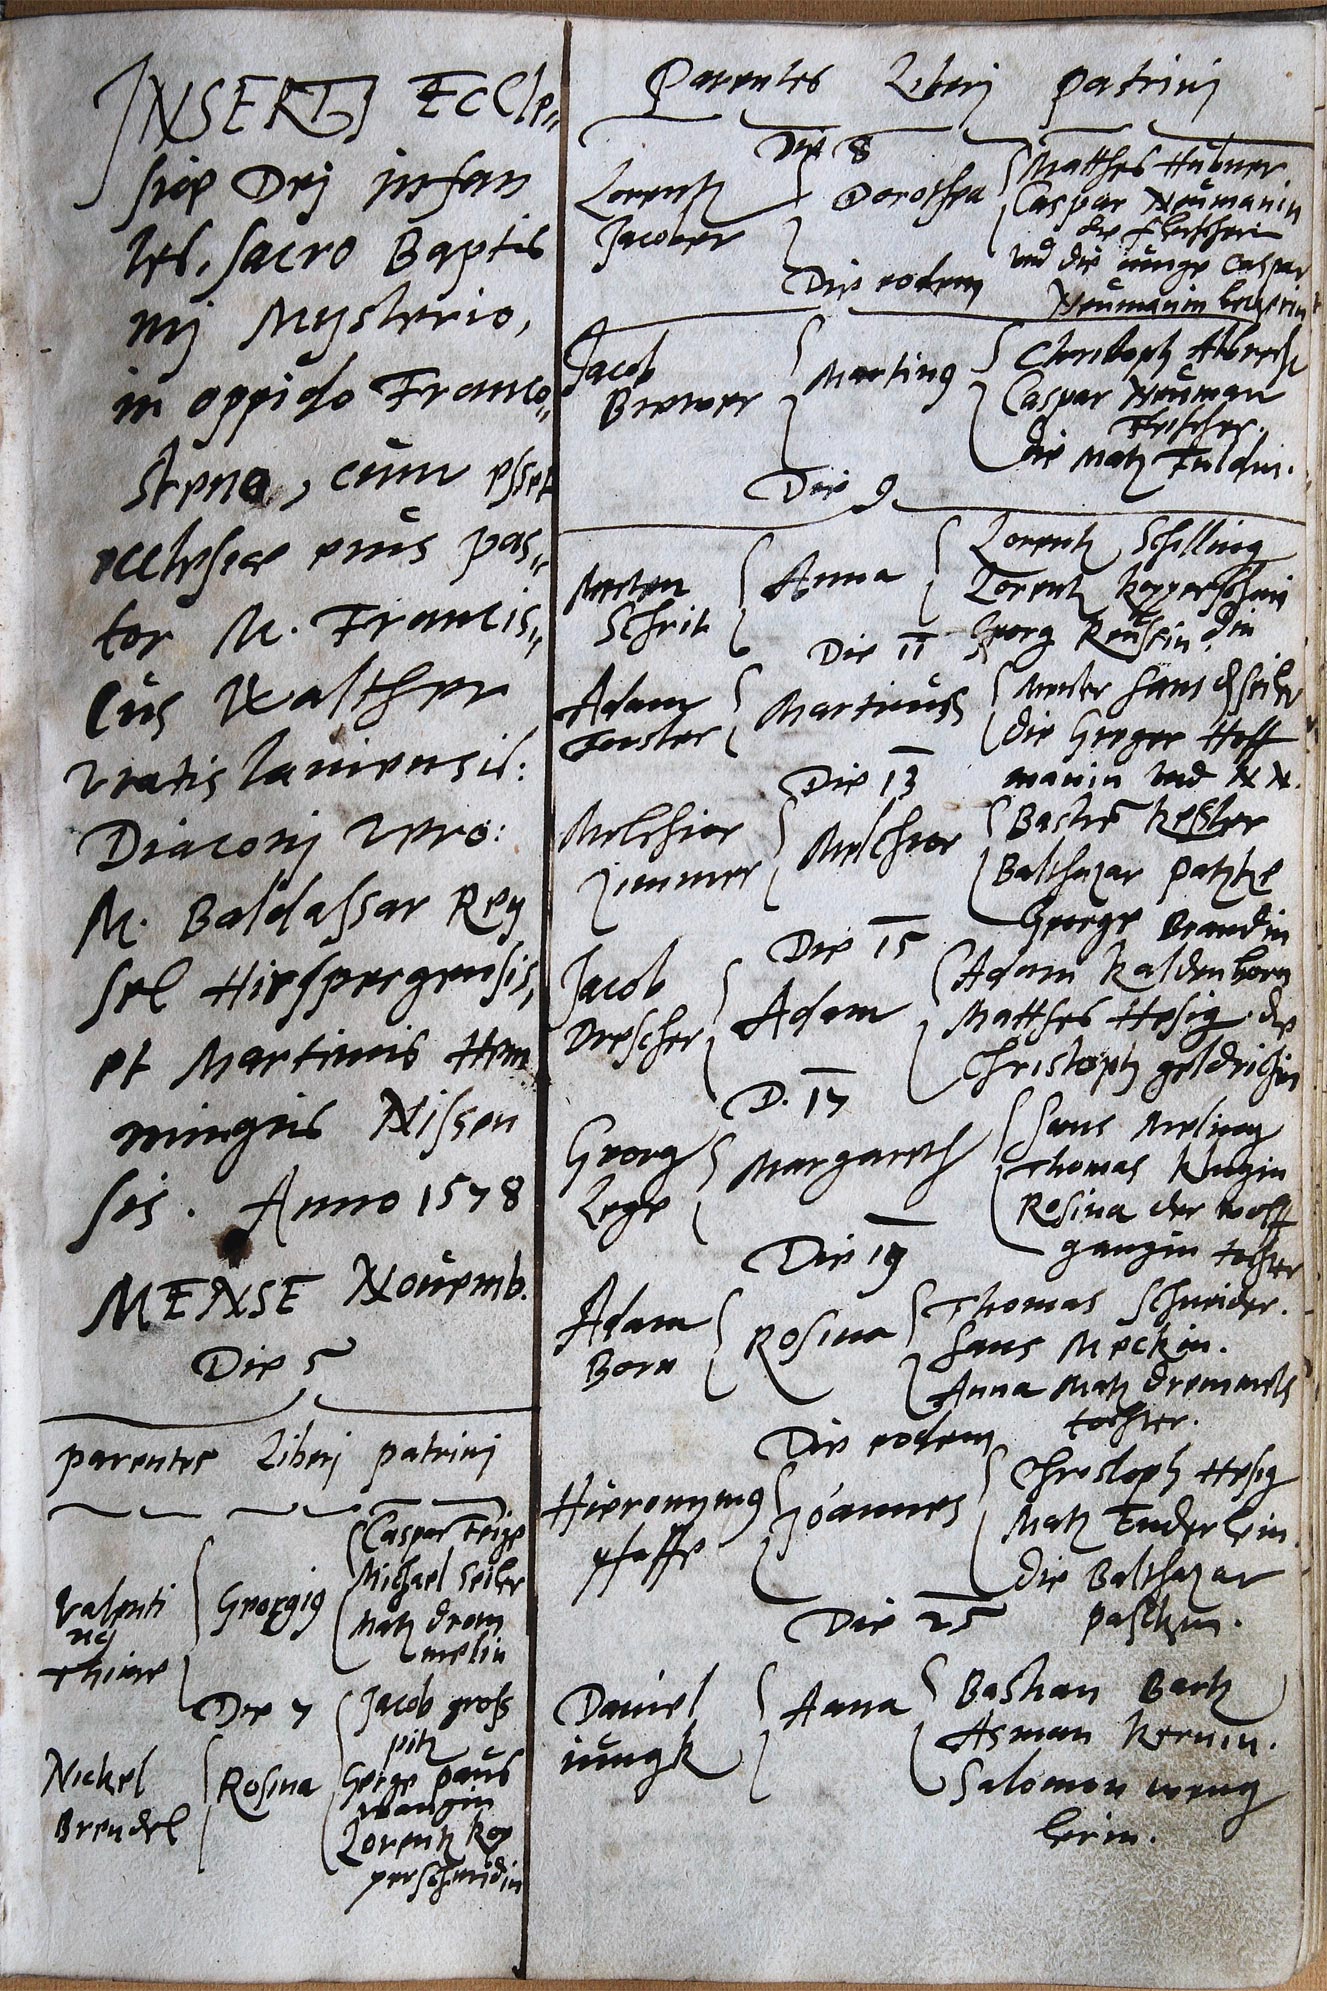 INSERTI Eccle„
siae Dej infan
tes, sacro Baptis
mj Mysterio,
in oppido Franco„
steno, cum esset
ecclesiae eius pas„
tor M. Francis„
cus Walther
Vratislauiensis:
Diaconj vero:
M. Baldassar Rey
sel Hirspergensis,
et Martinus Hem
mingius Nissen
sis. Anno 1578
MENSE Nouemb.
Die 5
parentes Liberj patrinj
Valenti
nus
Thime
Georgius
Caspar Feige
Michael Seiler
Matz drom
melin
Die 7
Nickel
Brendel
Rosina
Jacob gross
pitz
George paus
wangin
Lorentz kop
perschmidin
Parentes Liberj patrinj
Die 8
Lorentz
Jacober
Dorothea
Matthes Hubner
Caspar Neumanin
die fleischerin
und die iunge Caspar
Neumanin
Die eodem
Jacob
Brewer
Martinus
Christoph Albrecht
Caspar Neuman
Fleischer.
die Matz Fuldin.
Die 9
Merten
Schrik
Anna
Lorentz Schilling
Lorentz kopperschmi
din
Georg Reussin
Die 11
Adam
Forster
Martinus
Meister Hans
die Greger Hoff
manin und N N.
Die 13
Melchior
Zimmer
Melchior
Bastian kessler
Balthazar Patzke
George Brandin
Die 15
Jacob
Drescher
Adam
Adam kaldenborn
Matthes Hesig. die
Christoph geldrichin
D. 17
Georg
Lege
Margareth
Hans Meling
Thomas Klugin
Rosina der wolff
gangin tochter
Die 19
Adam
Born
Rosina
Thomas Schneider.
Hans Meckin.
Anna Matz dremmels
tochter.
Die eodem
Hieronymus
pfaffe
Joannes
Christoph Hesig
Matz Enderlein.
die Balthazar
paschin.
Die 25
Daniel
iungk
Anna
Bastian Bartz
Asman kernin.
Salomon weng
lerin.